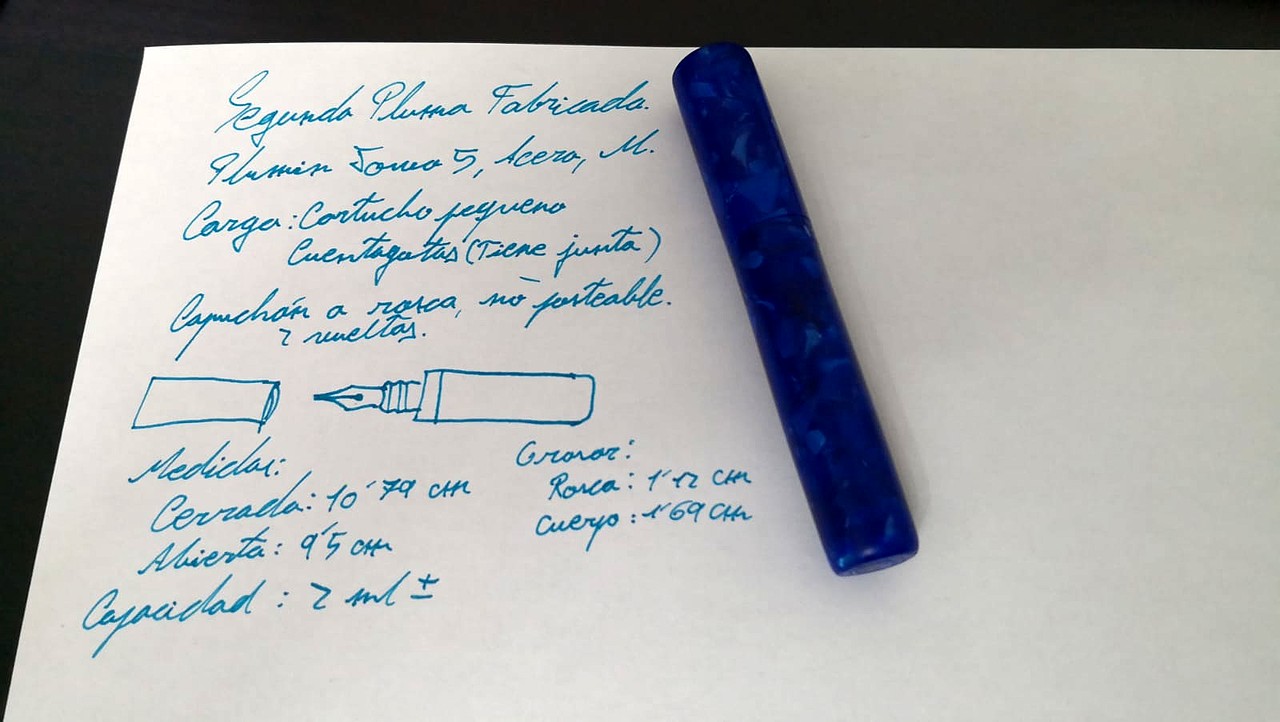 Segunda Pluma Fabricada.
Plumin Jowo 5, Acero, M.
Carga: Cartucho pequeno
Cuentagotas (Tiene junta)
Capuchón a rosca, no posteable.
2 vueltas.
Medidas:
Cerrada: 10'79 cm
Abierta: 9'5 cm
Capacidad: 2 ml ±
Grosor:
Rosca: 1'12 cm
Cuerpo: 1'69 cm